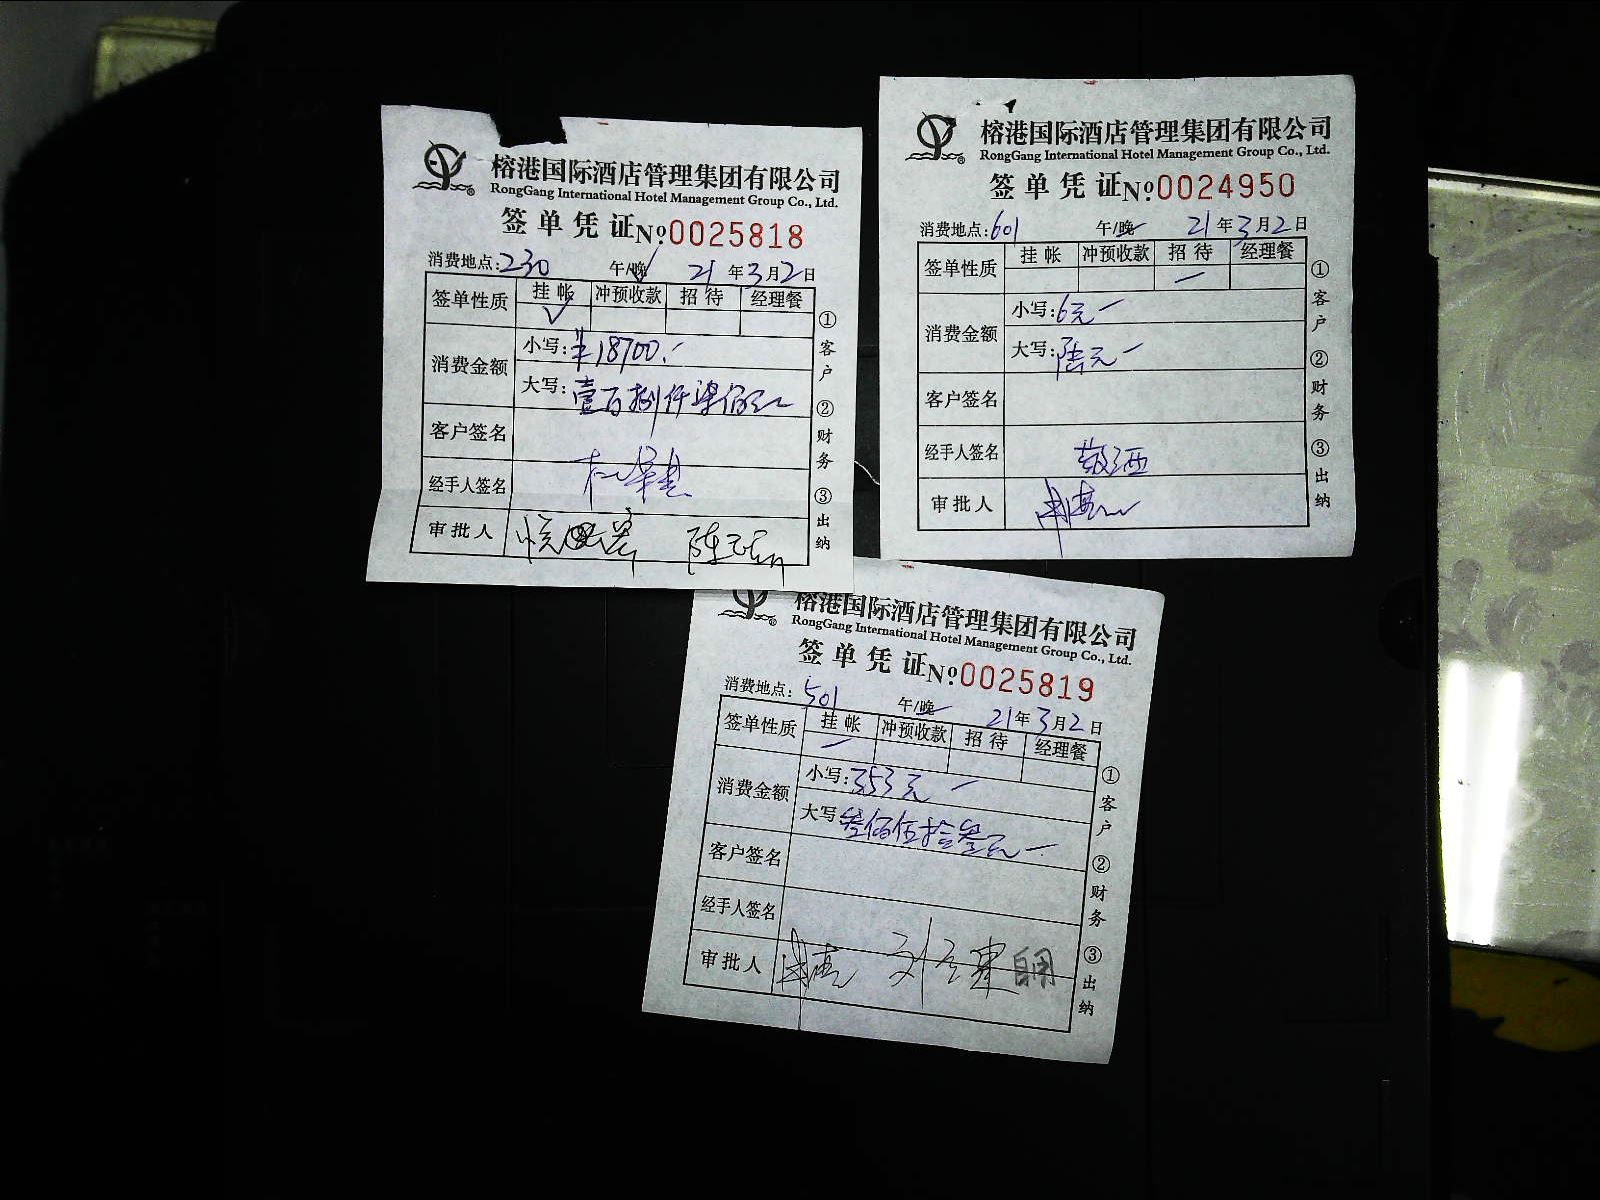 榕港国际酒店管理集团有限公司
RongGang International Hotel Management Group Co., Ltd.
签单凭证 No 0025818
消费地点:230 午/晚 21年3月2日
签单性质 挂帐 冲预收款 招待 经理餐
✓
消费金额 小写:¥18700.-
大写:壹万捌仟柒佰元
客户签名
经手人签名
审批人
①客户 ②财务 ③出纳
榕港国际酒店管理集团有限公司
RongGang International Hotel Management Group Co., Ltd.
签单凭证 No 0024950
消费地点:601 午/晚 21年3月2日
签单性质 挂帐 冲预收款 招待 经理餐
消费金额 小写:6元
大写:陆元
客户签名
经手人签名 敬酒
审批人
①客户 ②财务 ③出纳
榕港国际酒店管理集团有限公司
RongGang International Hotel Management Group Co., Ltd.
签单凭证 No 0025819
消费地点:501 午/晚 21年3月2日
签单性质 挂帐 冲预收款 招待 经理餐
消费金额 小写:353元
大写:叁佰伍拾叁元
客户签名
经手人签名
审批人 自用
①客户 ②财务 ③出纳